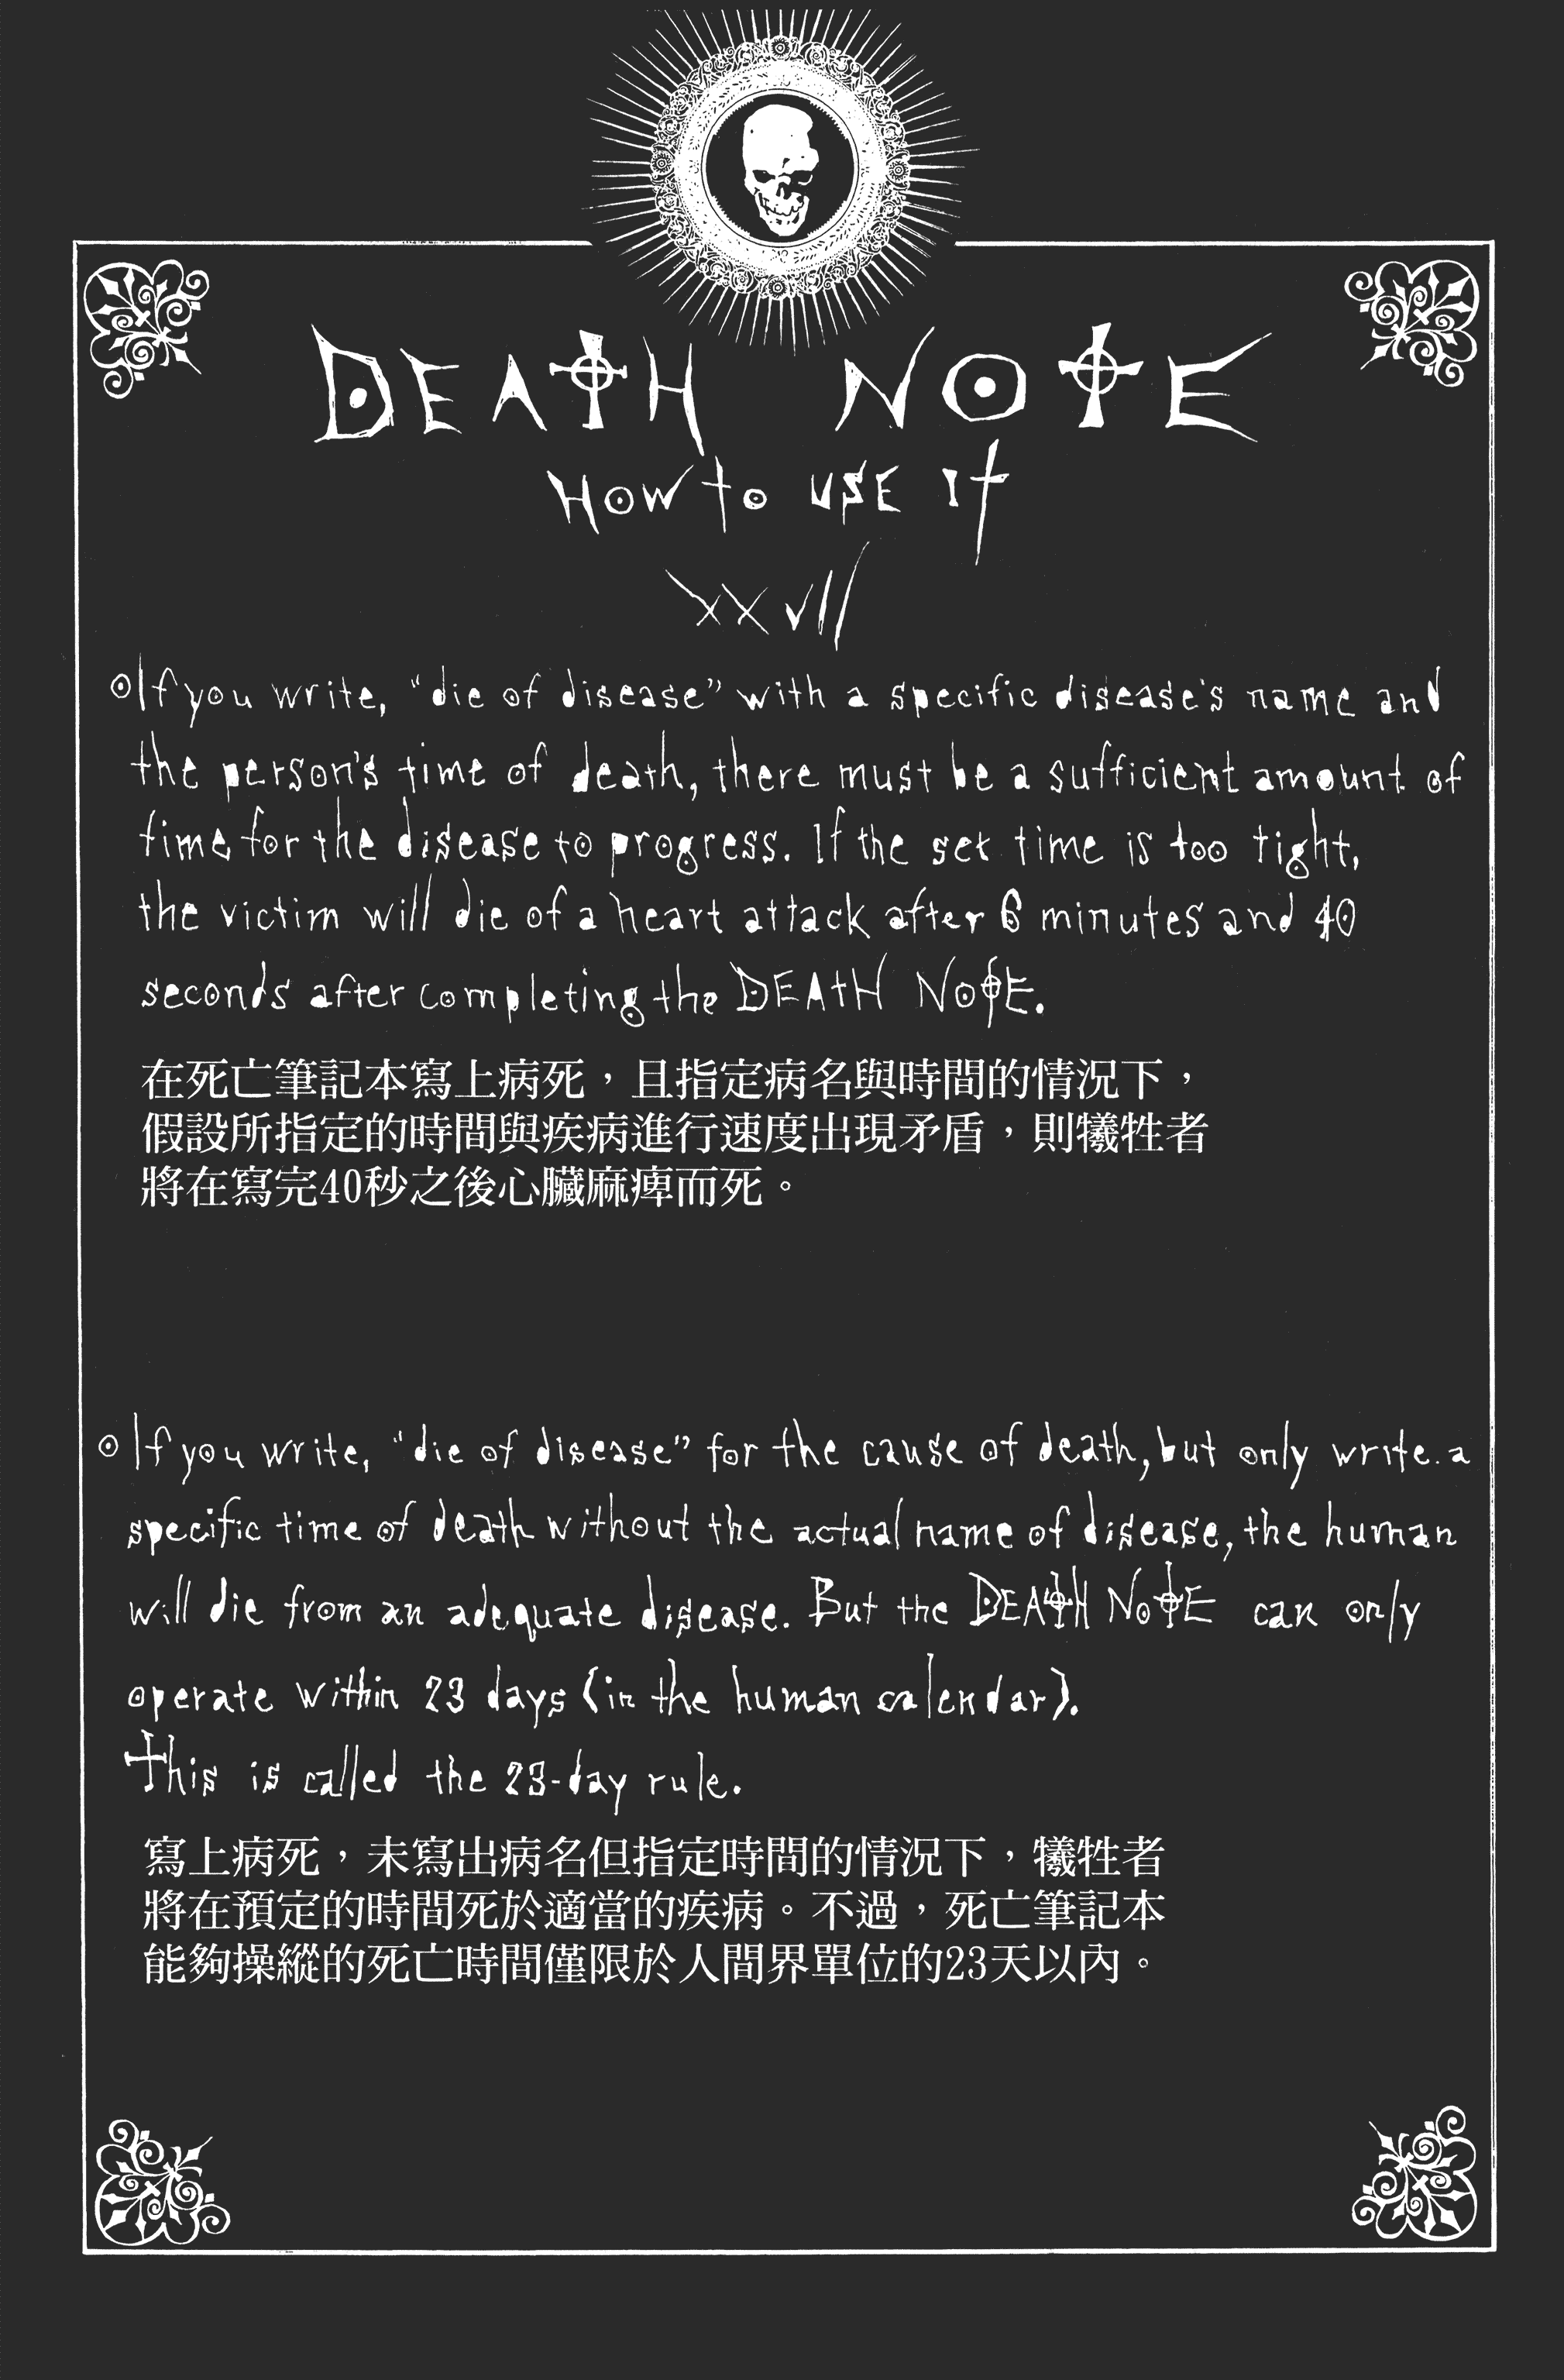 DEATH NOTE
How to use it
XXVII
If you write, "die of disease" with a specific disease's name and
the person's time of death, there must be a sufficient amount of
time for the disease to progress. If the set time is too tight,
the victim will die of a heart attack after 6 minutes and 40
seconds after completing the DEATH NOTE.
在死亡筆記本寫上病死，且指定病名與時間的情況下，
假設所指定的時間與疾病進行速度出現矛盾，則犧牲者
將在寫完40秒之後心臟麻痺而死。
If you write, "die of disease" for the cause of death, but only write a
specific time of death without the actual name of disease, the human
will die from an adequate disease. But the DEATH NOTE can only
operate within 23 days (in the human calendar).
This is called the 23-day rule.
寫上病死，未寫出病名但指定時間的情況下，犧牲者
將在預定的時間死於適當的疾病。不過，死亡筆記本
能夠操縱的死亡時間僅限於人間界單位的23天以內。